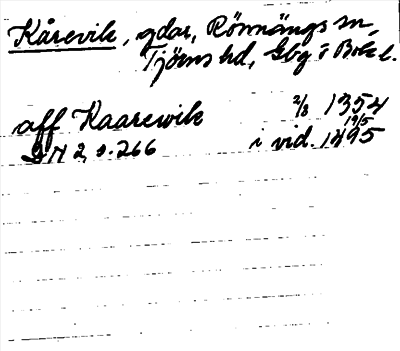 Kårevik, gdar, Rönnängs sn,
Tjörns hd, Gbg o Boh l.
aff Kaarewik 2/8 1354
DN 2, s. 266 i vid. 19/5 1495